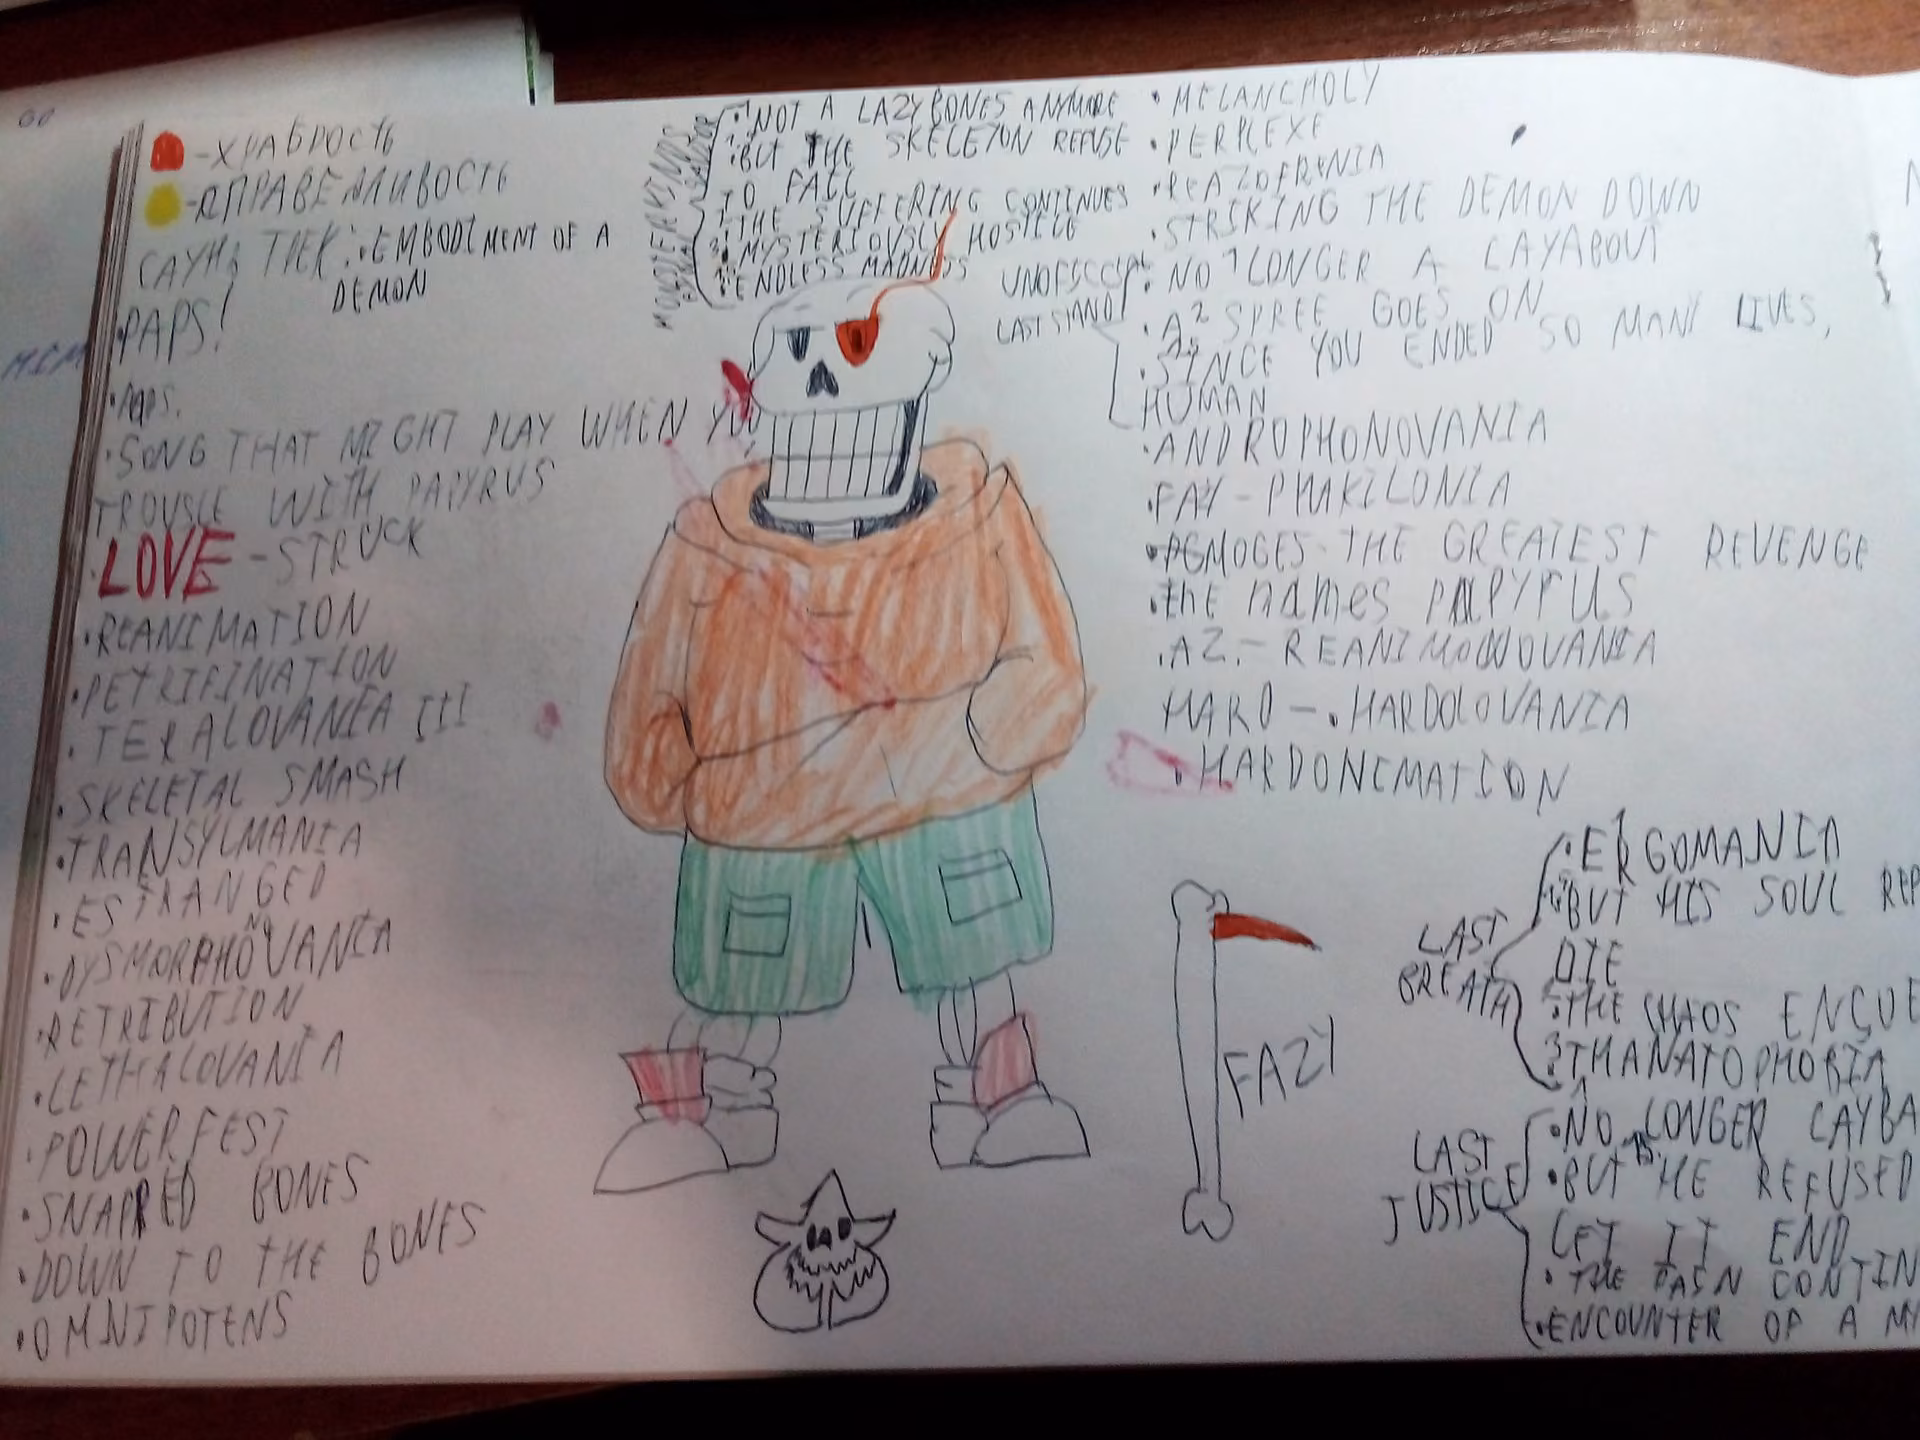 -ХРАБРОСТЬ
-СПРАВЕДЛИВОСТЬ
САУНД ТРЕК: • EMBODIMENT OF A
DEMON
• PAPS!
• paps.
• SONG THAT MIGHT PLAY WHEN YOU
TROUSLE WITH PAPYRUS
• LOVE-STRUCK
• REANIMATION
• PETRIFINATION
• TERALOVANIA III
• SKELETAL SMASH
• TRANSYLMANIA
• ESTRANGED
• DYSMORPHONOVANIA
• RETRIBUTION
• LETHALOVANIA
• POWERFEST
• SNAPPED BONES
• DOWN TO THE BONES
• OMNIPOTENS
• NOT A LAZYBONES ANYMORE
BUT THE SKELETON REFUSE
TO FALL
THE SUFFERING CONTINUES
MYSTERIOUSLY HOSTILE
ENDLESS MADNESS
• MELANCHOLY
• PERPLEXE
• STRIKING THE DEMON DOWN
UNOFFICIAL
LAST STAND
• NO LONGER A LAYABOUT
• A SPREE GOES ON
• SINCE YOU ENDED SO MANY LIVES,
HUMAN
• ANDROPHONOVANIA
• FAY - PHAKILONIA
THE GREATEST REVENGE
• the names PAPYRUS
• AZ.- REANIMONOVANIA
HARD - • HARDOLOVANIA
• HARDONIMATION
LAST
BREATH
• ERGOMANIA
BUT HIS SOUL REP
DIE
THE CHAOS ENÇUE
THANATOPHOBIA
LAST
JUSTICE
• NO LONGER LAYBA
• BUT HE REFUSED
LET IT END
• THE PAIN CONTIN
• ENCOUNTER OF A MY
FAZY